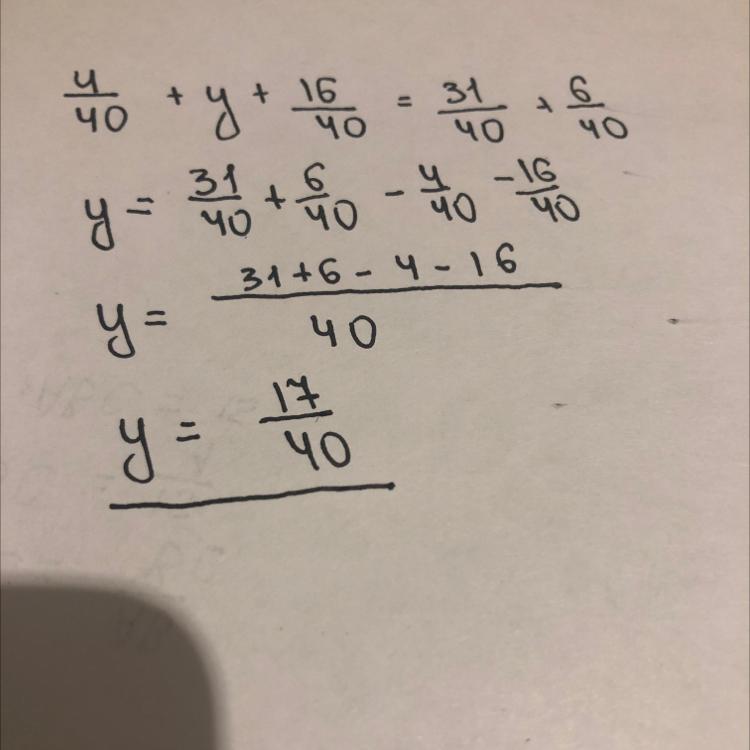 4/40 + y + 16/40 = 31/40 + 6/40
y = 31/40 + 6/40 - 4/40 - 16/40
y = (31+6-4-16)/40
y = 17/40